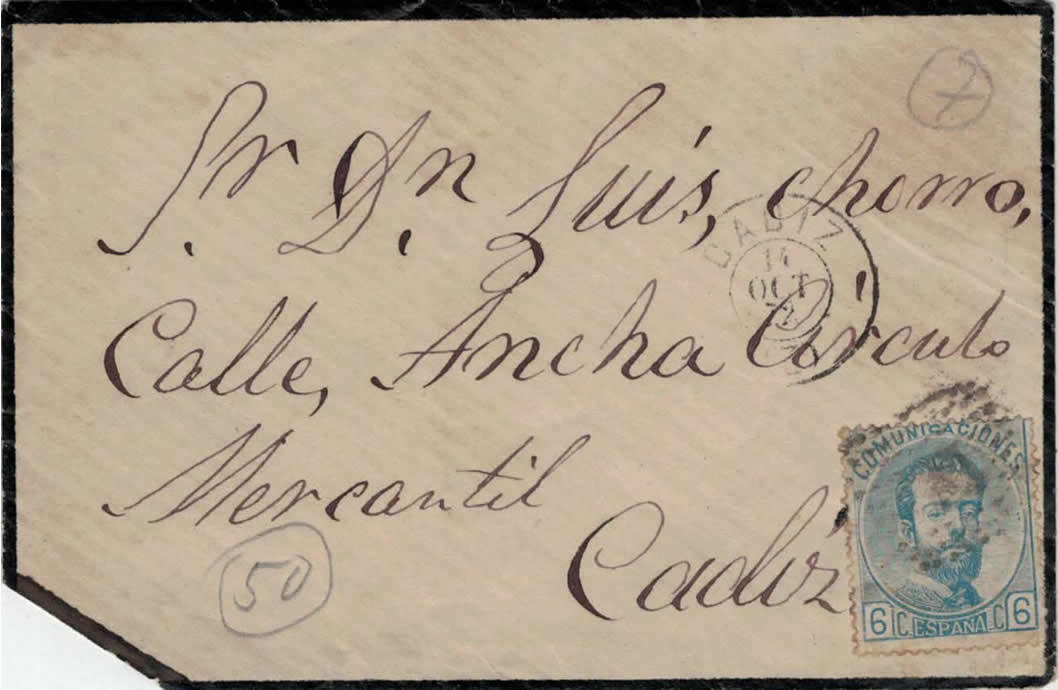 7
Sr. Dn. Luis, chorro,
CADIZ
14
OCT
72
Calle, Ancha Circulo
Mercantil
Cadiz
50
COMUNICACIONES
6 C. ESPAÑA C 6